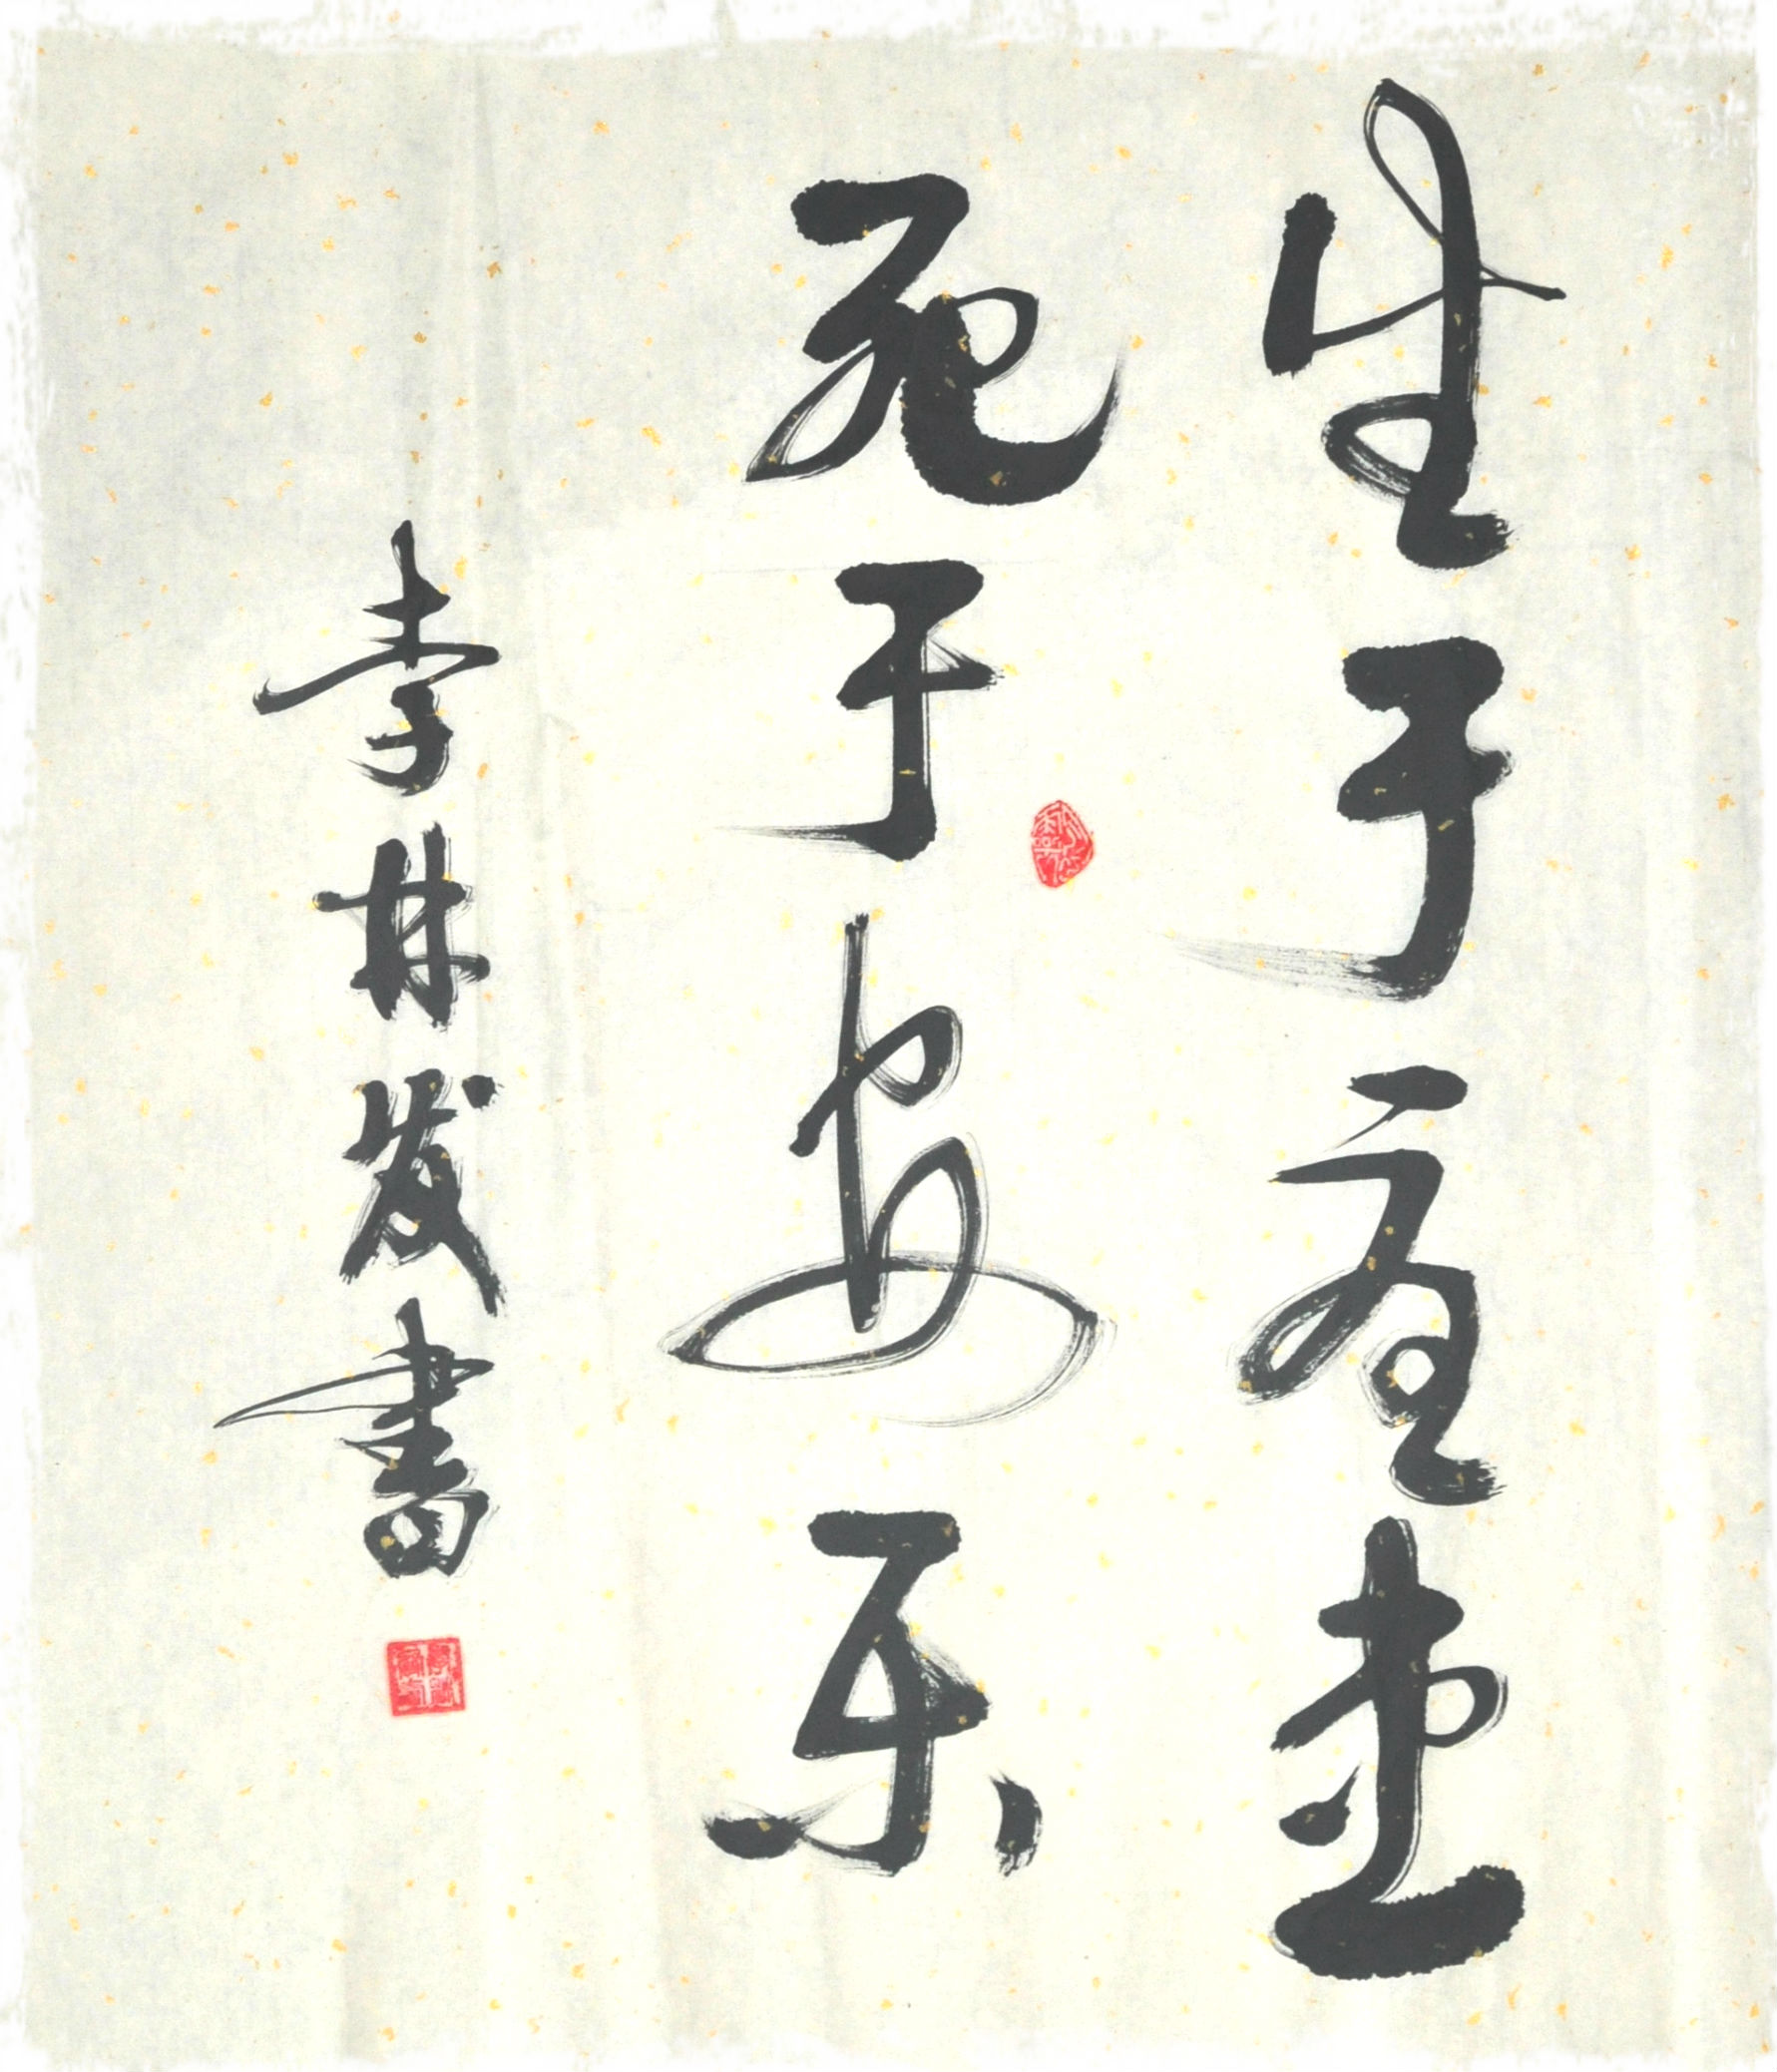 生于忧患
死于安乐
李林发書